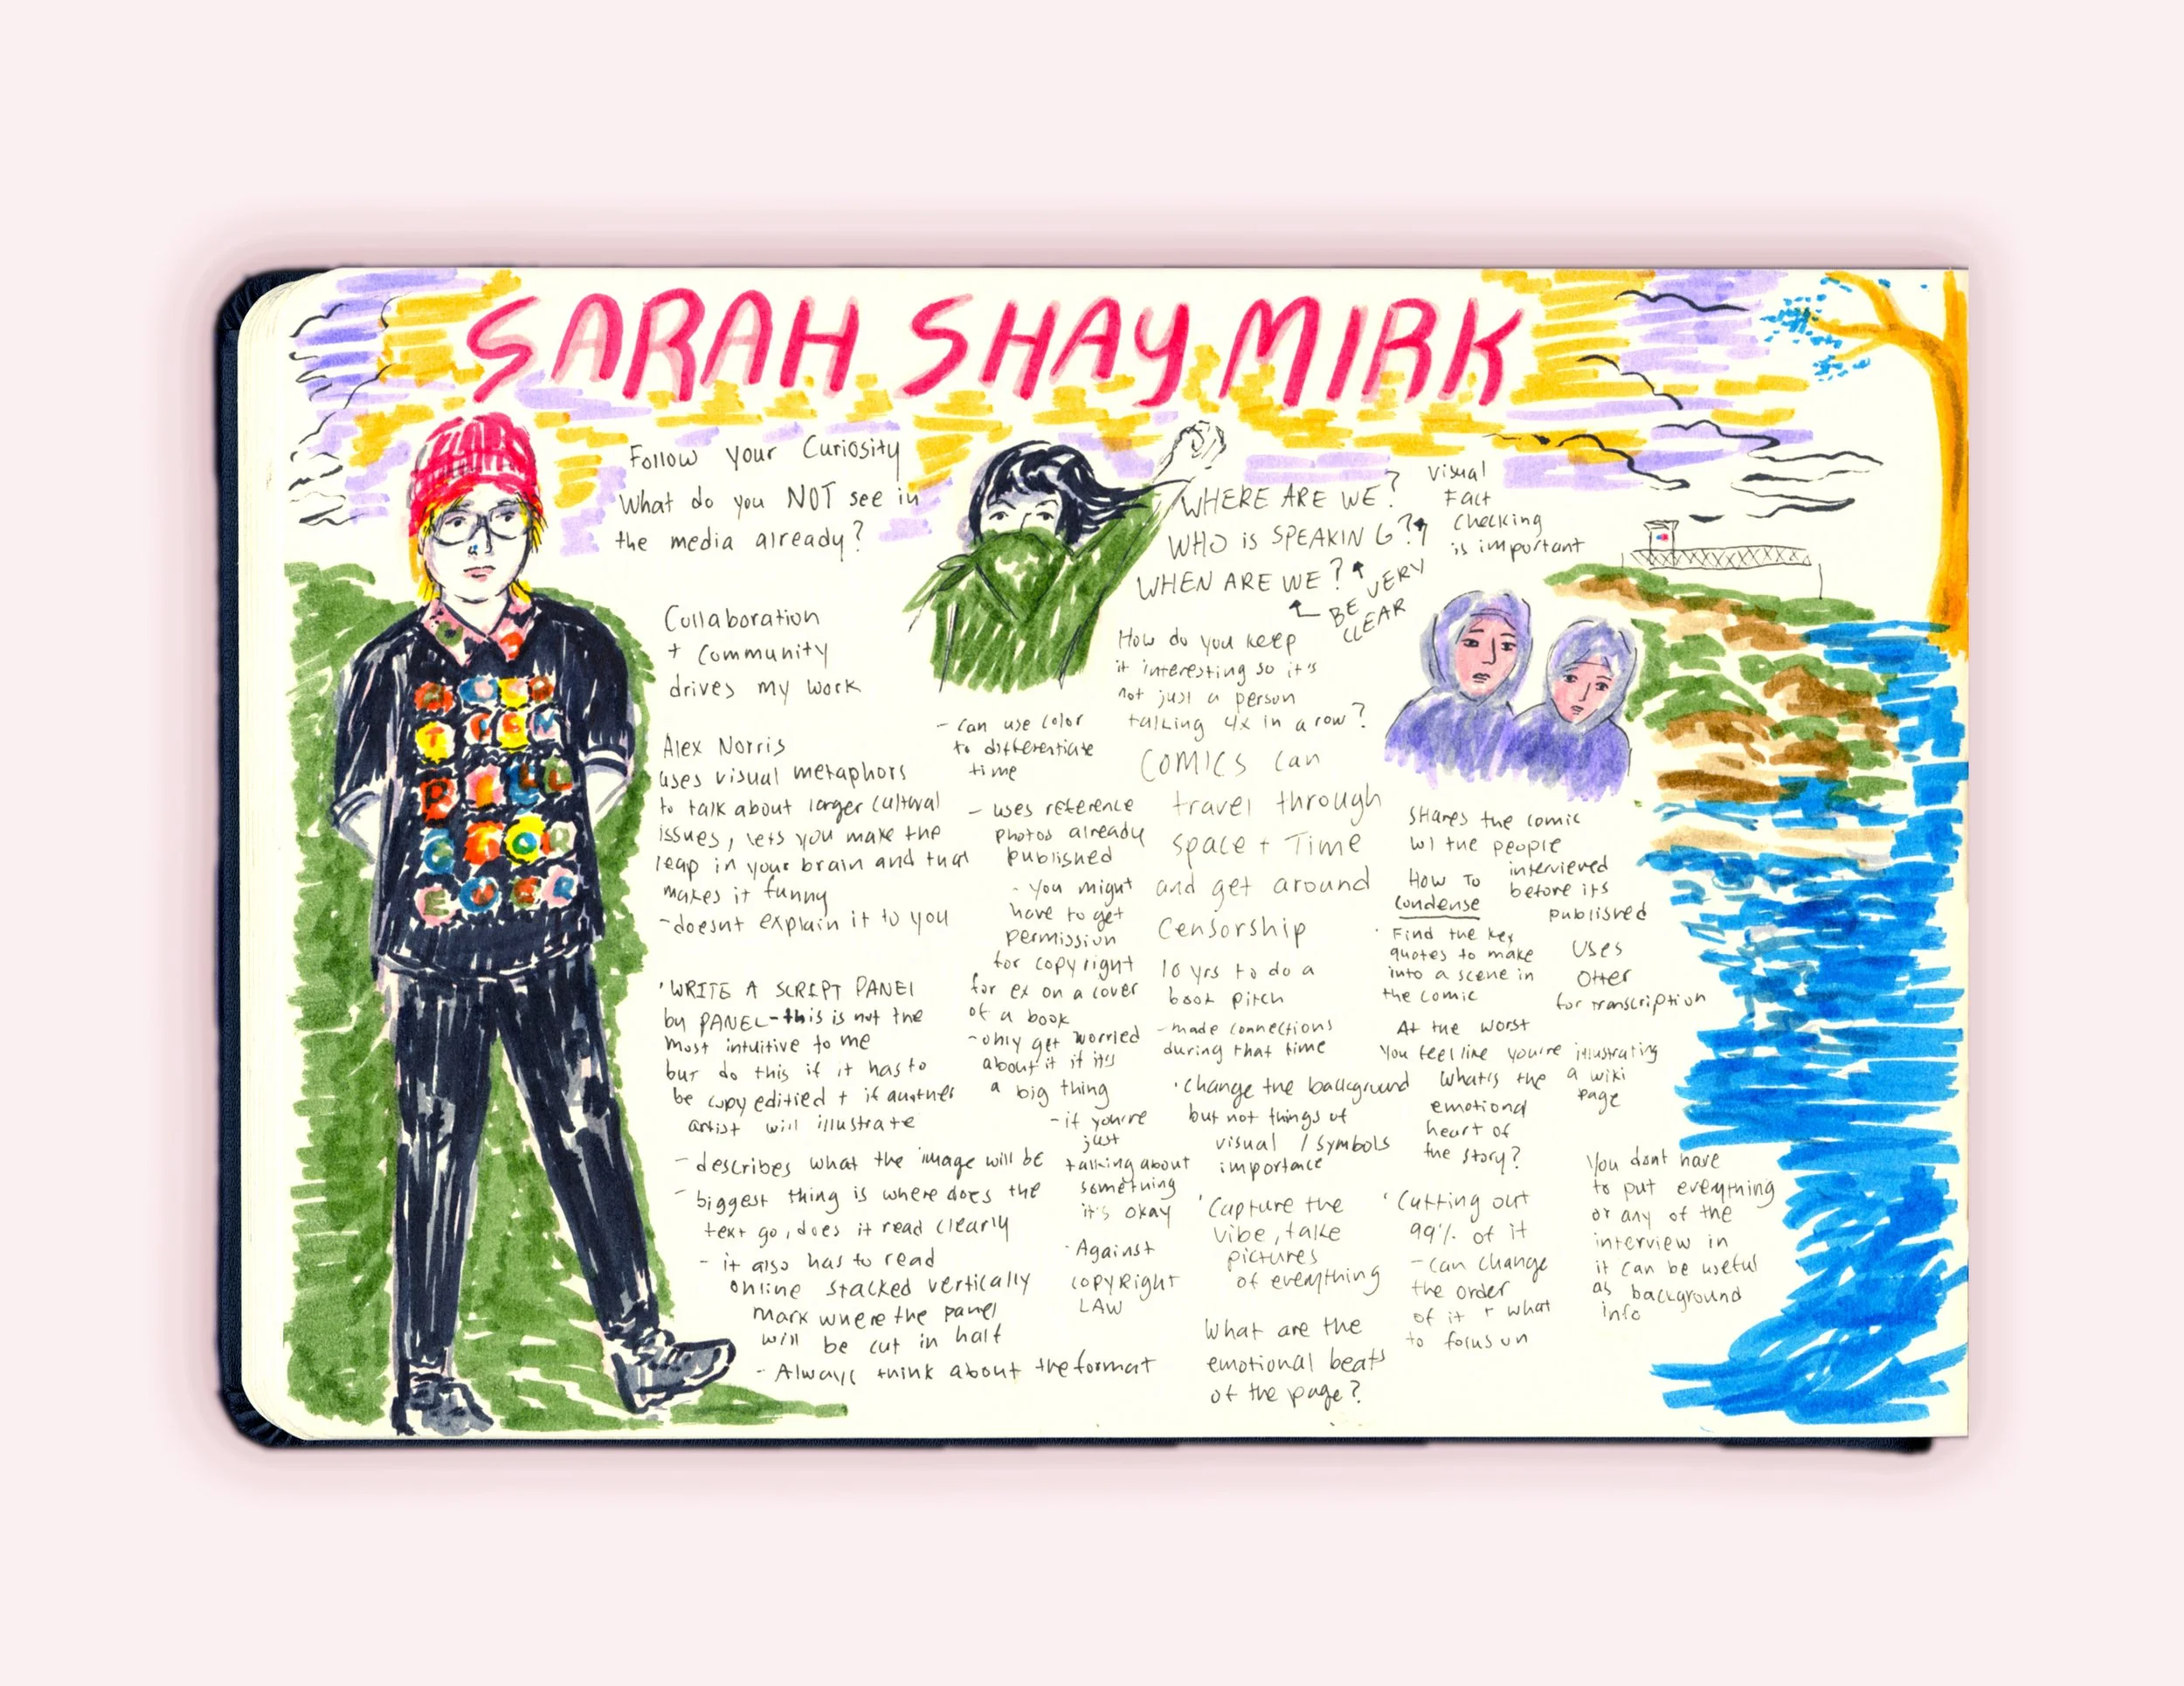 SARAH SHAY MIRK
Follow your Curiosity
What do you NOT see in
the media already?
Collaboration
+ community
drives my work
Alex Norris
uses visual metaphors
to talk about larger cultural
issues, lets you make the
leap in your brain and that
makes it funny
- doesnt explain it to you
' WRITE A SCRIPT PANEL
by PANEL - this is not the
most intuitive to me
but do this if it has to
be copy editied + if another
artist will illustrate
- describes what the image will be
- biggest thing is where does the
text go, does it read clearly
- it also has to read
online stacked vertically
mark where the panel
will be cut in half
- Always think about the format
- can use color
to differentiate
time
- uses reference
photos already
published
- You might
have to get
permission
for copyright
for ex on a cover
of a book
- only get worried
about it if it's
a big thing
- if you're
just
talking about
something
it's okay
· Against
COPYRIGHT
LAW
WHERE ARE WE?
WHO is SPEAKING?
WHEN ARE WE?
BE VERY
CLEAR
How do you keep
it interesting so it's
not just a person
talking 4x in a row?
COMICS can
travel through
space + Time
and get around
Censorship
10 yrs to do a
book pitch
- made connections
during that time
· change the background
but not things of
visual / symbols
importance
' Capture the
vibe, take
pictures
of everything
What are the
emotional beats
of the page?
Visual
Fact
Checking
is important
SHares the comic
w/ the people
interviewed
before its
published
HOW TO
Condense
· Find the key
quotes to make
into a scene in
the comic
Uses
Otter
for transcription
At the worst
You feel like you're illustrating
a wiki
page
What's the
emotional
heart of
the story?
' Cutting out
99% of it
- can change
the order
of it + what
to focus on
You dont have
to put everything
or any of the
interview in
it can be useful
as background
info